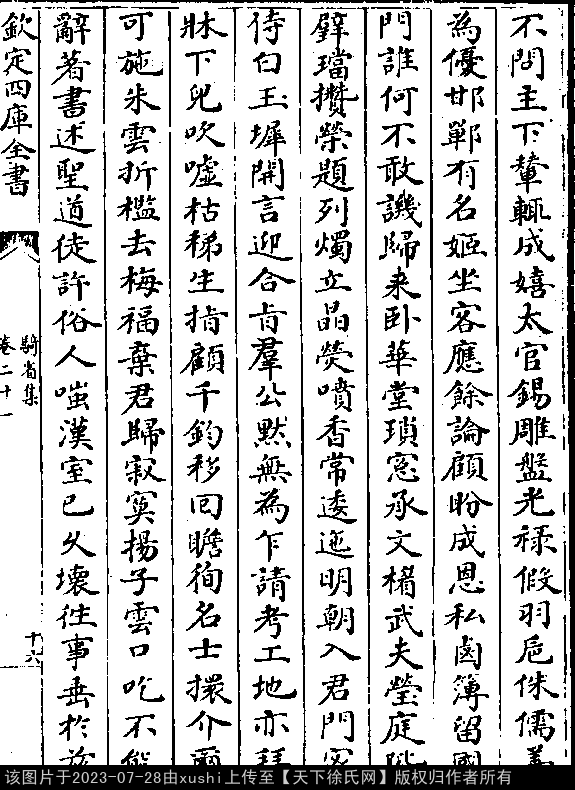 不問主下輦輙成嬉太官錫雕盤光祿假羽巵侏儒善
為優邯鄲有名姬坐客應餘論顧盼成恩私鹵簿留國
門誰何不敢譏歸来卧華堂瑣窓承文楣武夫瑩庭陛
璧璫攅榮題列燭立晶熒噴香常逶迤明朝入君門客
侍白玉墀開言迎合㫖羣公黙無為乍請考工地亦拜
牀下兒吹嘘枯稊生指顧千鈞移囘瞻徇名士擐介爾
可施朱雲折檻去梅福棄君歸寂寞揚子雲口吃不能
辭著書述聖道徒許俗人嗤漢室已久壊徃事垂於兹
欽定四庫全書
騎省集
卷二十一
十六
该图片于2023-07-28由xushi上传至【天下徐氏网】版权归作者所有